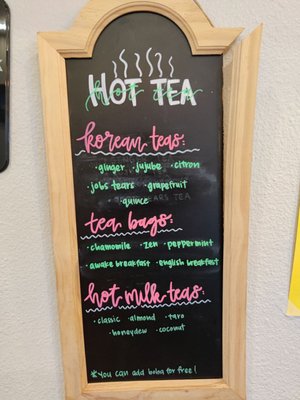 HOT TEA
korean teas:
· ginger · jujube · citron
· jobs tears · grapefruit
· quince
tea bags:
· chamomile · zen · peppermint
· awake breakfast · english breakfast
hot milk teas:
· classic · almond · taro
· honeydew · coconut
*You can add boba for free!